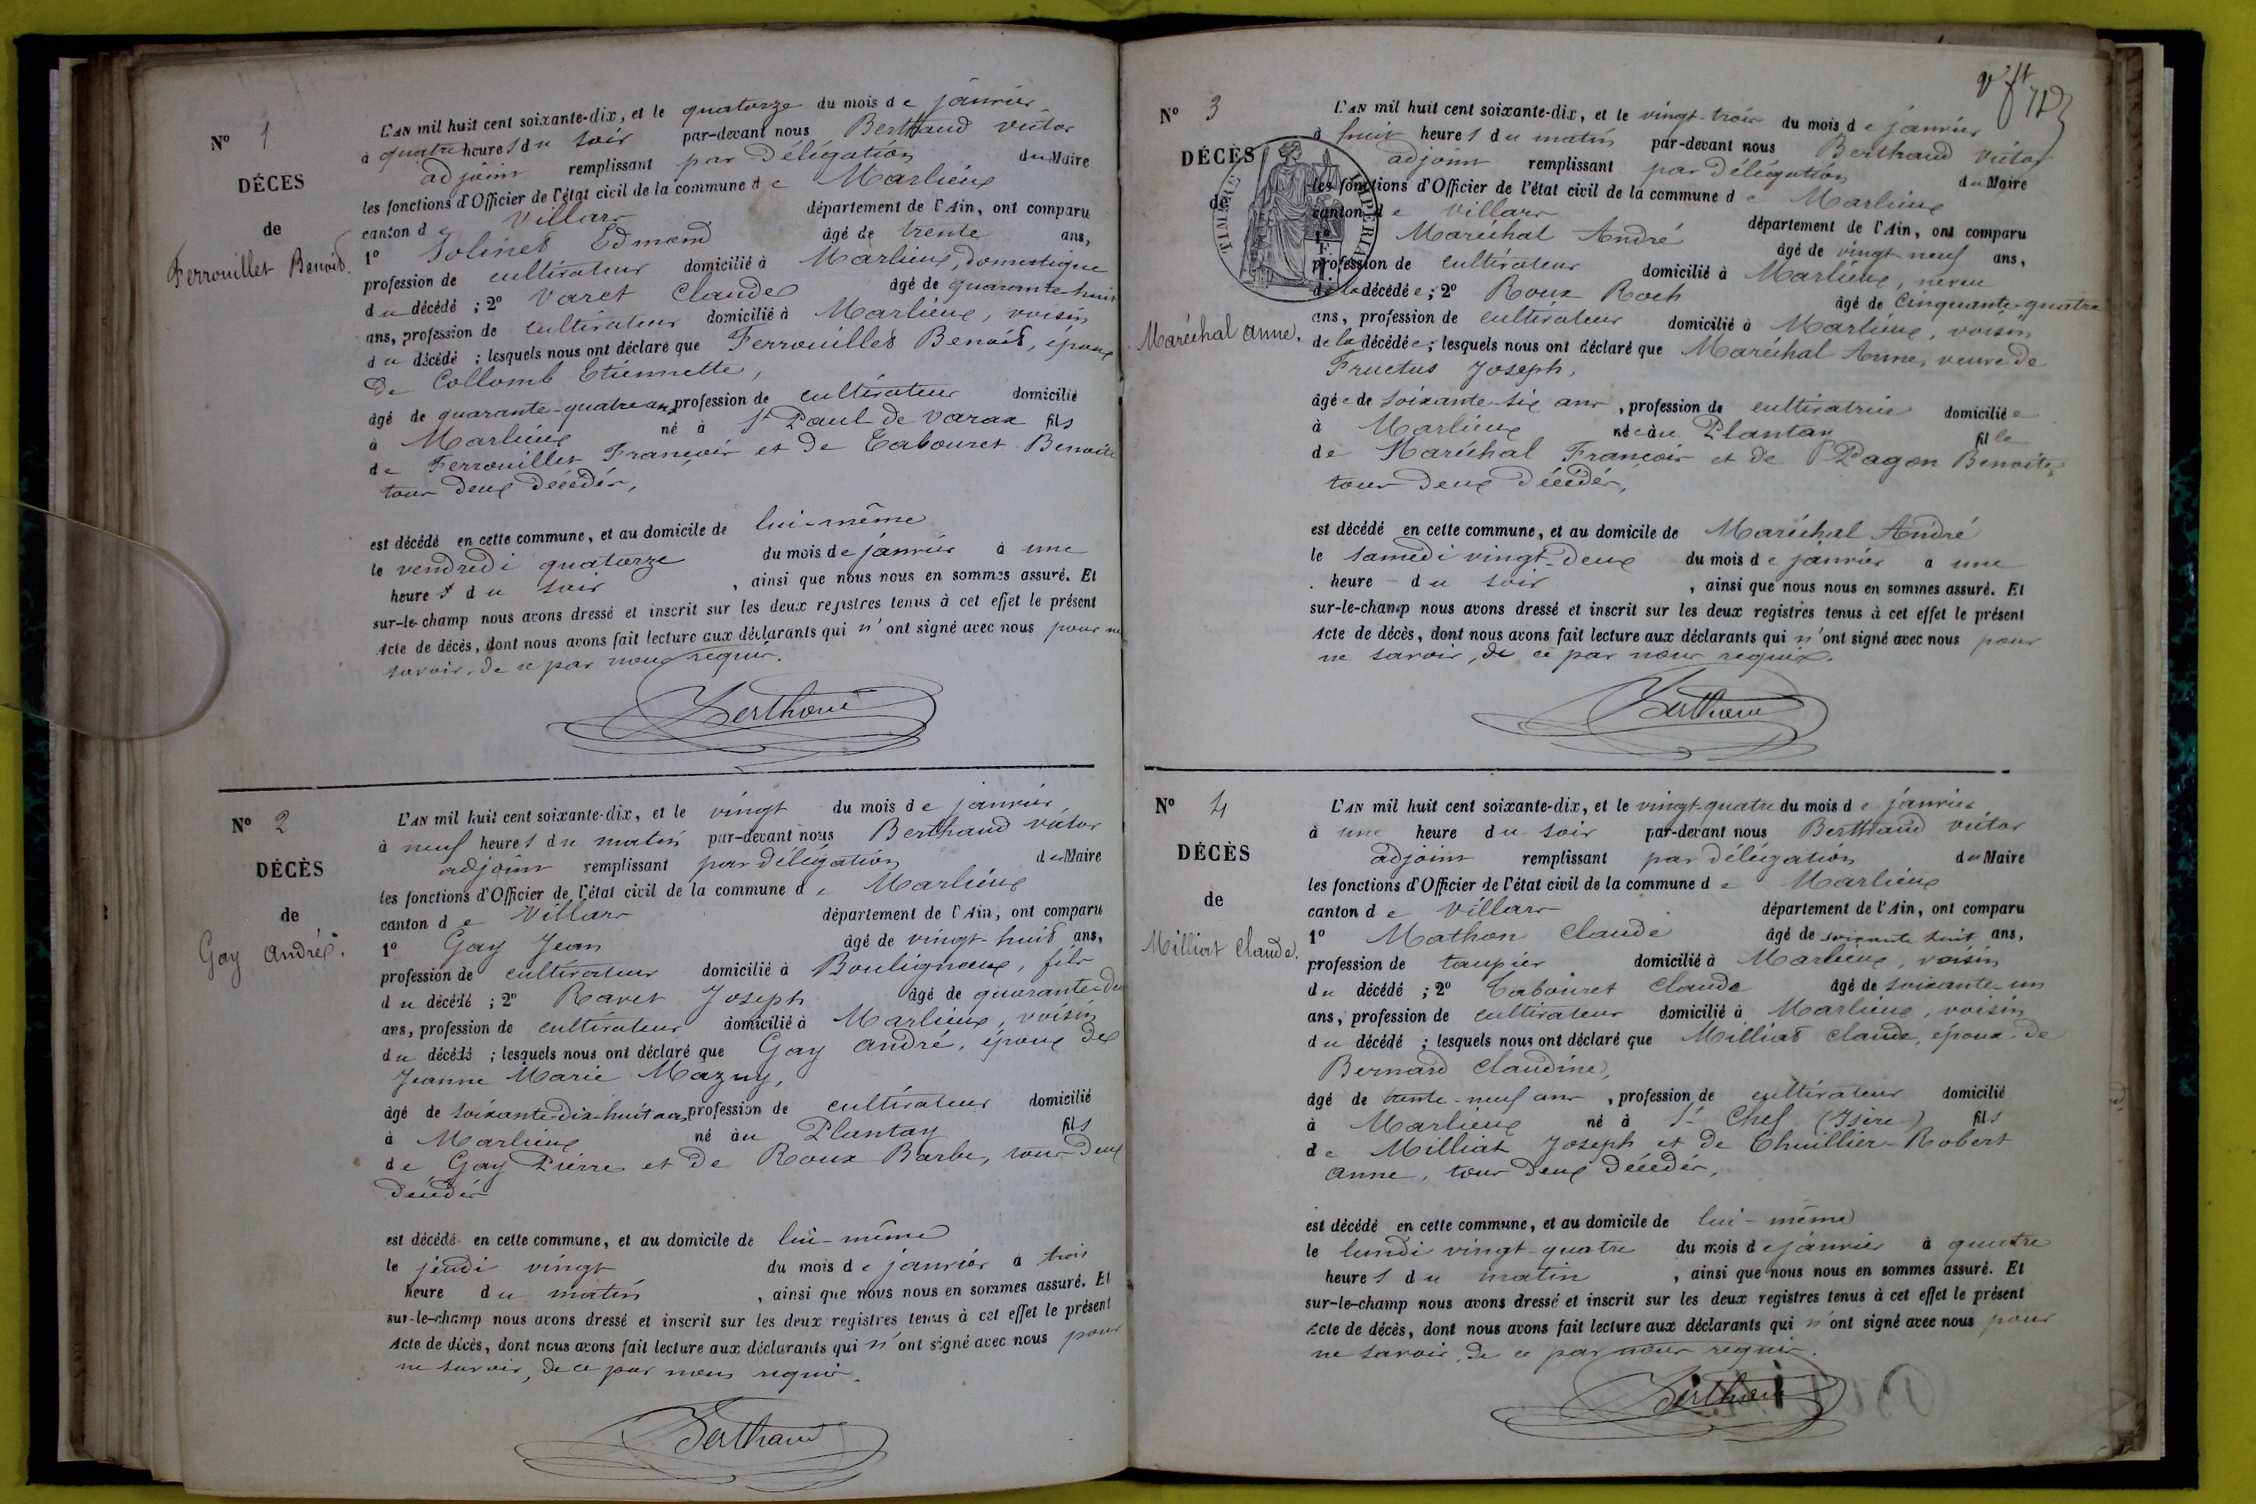 N° 1
DÉCÈS
de
Ferrouillet Benoit.
L'AN mil huit cent soixante-dix, et le quatorze du mois de janvier
à quatre heures du soir par-devant nous Berthaud victor
adjoint remplissant par Délégation du Maire
les fonctions d'Officier de l'état civil de la commune de Marlieux
canton de Villars département de l'Ain, ont comparu
1° Solinet Edmond âgé de trente ans,
profession de cultivateur domicilié à Marlieux, domestique
du décédé ; 2° Varet Claude âgé de quarante huit
ans, profession de cultivateur domicilié à Marlieux, voisin
du décédé ; lesquels nous ont déclaré que Ferrouillet Benoit, époux
De Collomb Etiennette,
âgé de quarante-quatre ans profession de cultivateur domicilié
à Marlieux né à St Paul de varax fils
de Ferrouillet François et de Tabouret Benoite
tous deux décédés,
est décédé en cette commune, et au domicile de lui-même
le vendredi quatorze du mois de janvier à une
heure du soir , ainsi que nous nous en sommes assuré. Et
sur-le-champ nous avons dressé et inscrit sur les deux registres tenus à cet effet le présent
Acte de décès, dont nous avons fait lecture aux déclarants qui n'ont signé avec nous pour ne
savoir, de ce par nous requis.
Berthaud
N° 2
DÉCÈS
de
Gay André.
L'AN mil huit cent soixante-dix, et le vingt du mois de janvier
à neuf heures du matin par-devant nous Berthaud victor
adjoint remplissant par délégation du Maire
les fonctions d'Officier de l'état civil de la commune de Marlieux
canton de Villars département de l'Ain, ont comparu
1° Gay Jean âgé de vingt-huit ans,
profession de cultivateur domicilié à Bouligneux, fils
du décédé ; 2° Ravet Joseph âgé de quarante-de
ans, profession de cultivateur domicilié à Marlieux, voisin
du décédé ; lesquels nous ont déclaré que Gay André, époux de
Jeanne Marie Mazuy,
âgé de soixante-dix-huit ans profession de cultivateur domicilié
à Marlieux né au Plantay fils
de Gay Pierre et de Roux Barbe, tous deux
décédés
est décédé en cette commune, et au domicile de lui-même
le jeudi vingt du mois de janvier à trois
heure du matin , ainsi que nous nous en sommes assuré. Et
sur-le-champ nous avons dressé et inscrit sur les deux registres tenus à cet effet le présent
Acte de décès, dont nous avons fait lecture aux déclarants qui n'ont signé avec nous pour
ne savoir, de ce par nous requis.
Berthaud
N° 3
DÉCÈS
de
Maréchal anne.
TIMBRE IMPÉRIAL
L'AN mil huit cent soixante-dix, et le vingt-trois du mois de janvier
à huit heures du matin par-devant nous Berthaud victor
adjoint remplissant par délégation du Maire
les fonctions d'Officier de l'état civil de la commune de Marlieux
canton de Villars département de l'Ain, ont comparu
1° Maréchal André âgé de vingt-neuf ans,
profession de cultivateur domicilié à Marlieux, neveu
de la décédée ; 2° Roux Roch âgé de Cinquante-quatre
ans, profession de cultivateur domicilié à Marlieux, voisin
de la décédée ; lesquels nous ont déclaré que Maréchal Anne, veuve de
Fructus Joseph,
âgée de soixante-six ans , profession de cultivatrice domiciliée
à Marlieux née au Plantay fille
de Maréchal François et de Pagon Benoite,
tous deux décédés,
est décédé en cette commune, et au domicile de Maréchal André
le samedi vingt-deux du mois de janvier à une
heure du soir , ainsi que nous nous en sommes assuré. Et
sur-le-champ nous avons dressé et inscrit sur les deux registres tenus à cet effet le présent
Acte de décès, dont nous avons fait lecture aux déclarants qui n'ont signé avec nous pour
ne savoir, de ce par nous requis.
Berthaud
N° 4
DÉCÈS
de
Milliat Claude.
L'AN mil huit cent soixante-dix, et le vingt-quatre du mois de janvier
à une heure du soir par-devant nous Berthaud victor
adjoint remplissant par délégation du Maire
les fonctions d'Officier de l'état civil de la commune de Marlieux
canton de Villars département de l'Ain, ont comparu
1° Mathon Claude âgé de soixante huit ans,
profession de taupier domicilié à Marlieux, voisin
du décédé ; 2° Tabouret Claude âgé de soixante-un
ans, profession de cultivateur domicilié à Marlieux, voisin
du décédé ; lesquels nous ont déclaré que Milliat Claude, époux de
Bernard Claudine,
âgé de trente-neuf ans , profession de cultivateur domicilié
à Marlieux né à St Chef (Isère) fils
de Milliat Joseph et de Thuillier-Robert
Anne, tous deux décédés,
est décédé en cette commune, et au domicile de lui-même
le lundi vingt-quatre du mois de janvier à quatre
heures du matin , ainsi que nous nous en sommes assuré. Et
sur-le-champ nous avons dressé et inscrit sur les deux registres tenus à cet effet le présent
Acte de décès, dont nous avons fait lecture aux déclarants qui n'ont signé avec nous pour
ne savoir, de ce par nous requis.
Berthaud